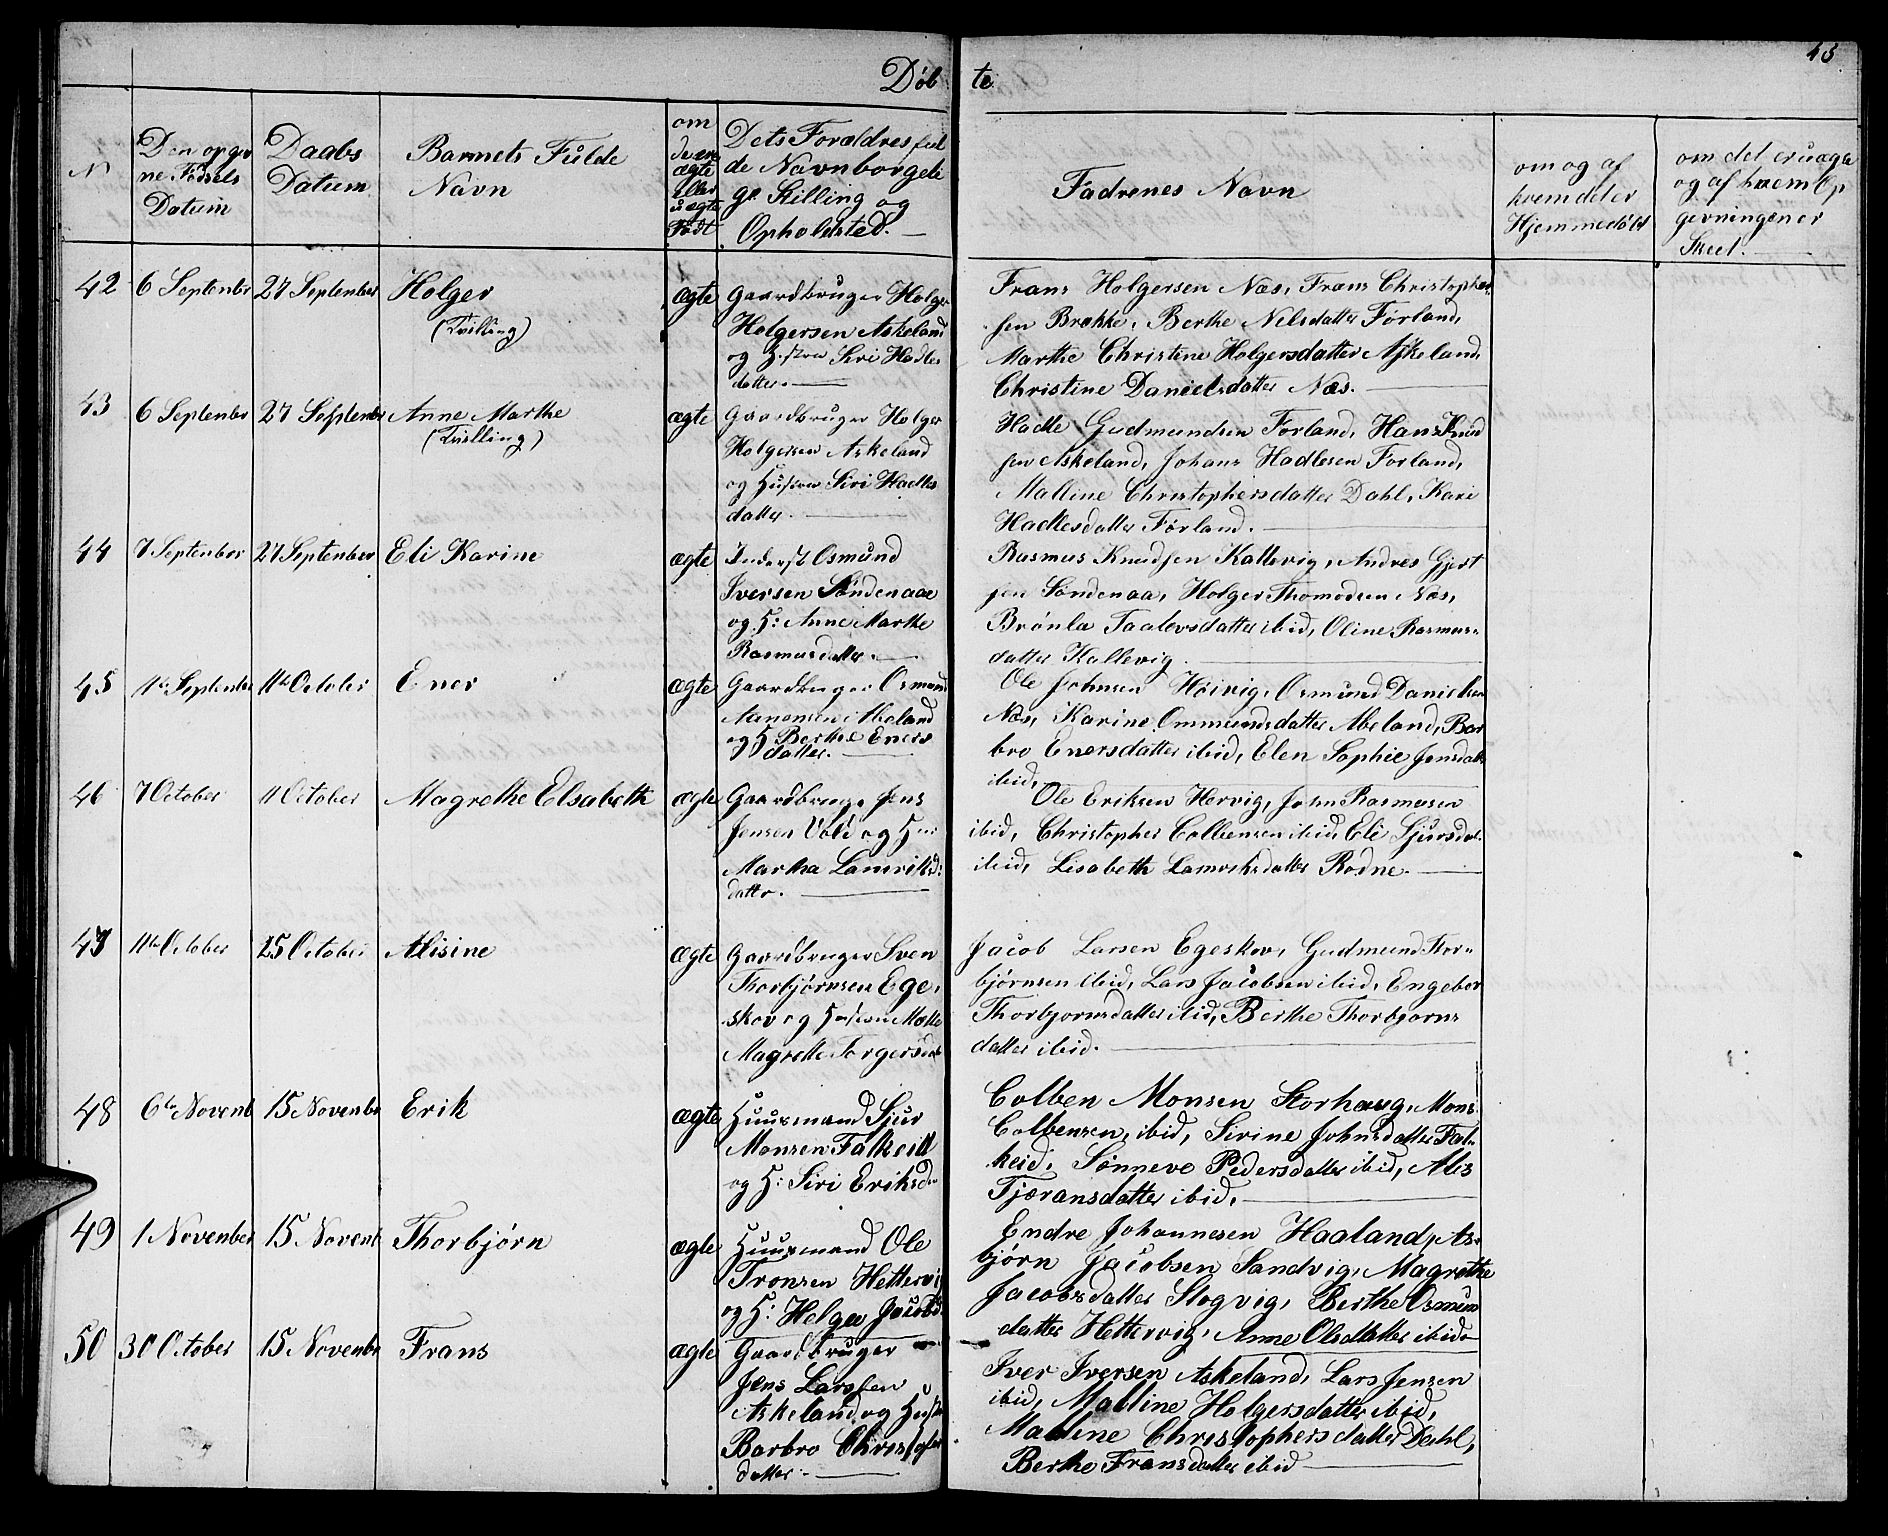 43
Døbte
N
Den opgiv
ne Fødsels
Datum
Daabs
Datum
Barnets Fulde
Navn
om
det er
ægte
eller
uægte
Født
Dets Forældres ful
de Navn borgeli
ge Stilling og
Opholdsted. —
Fadrenes Navn
om og af
hvem det er
Hjemmedøbt
om det er uægte
og af hvem Op
givningen er
Skeet. —
42 6 September 27 September Holger
(Tvilling)
ægte
Gaardbruger Holger
Holgersen Askeland
og Hustru Siri Hadles
datter. —
Frans Holgersen Næs, Frans Christopher-
sen Brække, Berthe Nelsdatter Førland,
Marthe Christine Holgersdatter Askeland,
Christine Danielsdatter Næs. —
43 6 September 27 September Anne Marthe
(Tvilling)
ægte
Gaardbruger Holger
Holgersen Askeland
og Hustru Siri Hadles
datter. —
Hadle Gudmundsen Førland, Hans Knud
sen Askeland, Johans Hadlesen Førland,
Malline Christophersdatter Dahl, Kari
Hadlesdatter Førland. —
44 7 September 27 September Eli Karine
ægte
Inderst Osmund
Iversen Søndenaae
og H: Anne Marthe
Rasmusdatter. —
Rasmus Knudsen Kallevig, Andres Gjert
sen Søndenaa, Holger Thomodsen Næs,
Brønla Taalevsdatter ibid, Oline Rasmus-
datter Kallevig. —
45 11te September 11te October Ener
ægte
Gaardbruger Osmund
Aanensen Abeland
og H Berthe Eners
datter. —
Ole Johnsen Høivig, Osmund Danielsen
Næs, Karine Ommundsdatter Abeland, Bar
bro Enersdatter ibid, Elen Sophie Jensdatter
ibid,
46 7 October 11 October Magrethe Elsabeth
ægte
Gaardbruger Jens
Jensen Vold og H
Martha Lamriks
datter. —
Ole Eriksen Hervig, John Rasmusen
ibid, Christopher Colbensen ibid, Eli Sjursdat.
ibid, Lisabeth Lamriksdatter Rodne. —
47 11te October 25 October Alisine
ægte
Gaardbruger Sven
Thorbjørnsen Ege-
skov og Hustru Malle
Magrette Torgersdat
Jacob Larsen Egeskov, Gudmund Thor-
bjørnsen ibid, Lars Jacobsen ibid, Engebor
Thorbjornsdatter ibid, Berthe Thorbjørns
datter ibid. —
48 6te Novemb 15 Novembr Erik
ægte
Huusmand Sjur
Monsen Falkeid
og H: Siri Eriksd
Colben Monsen Storhaug, Mons
Colbensen, ibid, Sirine Johnsdatter Fal-
keid, Sønneve Pedersdatter ibid, Alis
Tjæransdatter ibid. —
49 1 November 15 Novemb Thorbjørn
ægte
Huusmand Ole
Tronsen Hettervi
og H: Helga Jacobsd
Endre Johannesen Haaland, As-
bjørn Jacobsen Sandvig, Magrethe
Jacobsdatter Slogvig, Berthe Osmun
datter Hettervig, Anne Olsdatter ibid
50 30 October 15 Novembr Frans
ægte
Gaardbruger
Jens Larssen
Askeland og Hustr
Barbro Christofer
datter. —
Iver Iversen Askeland, Lars Jensen
ibid, Malline Holgersdatter ibid,
Malline Christophersdatter Dahl,
Berthe Fransdatter ibid —